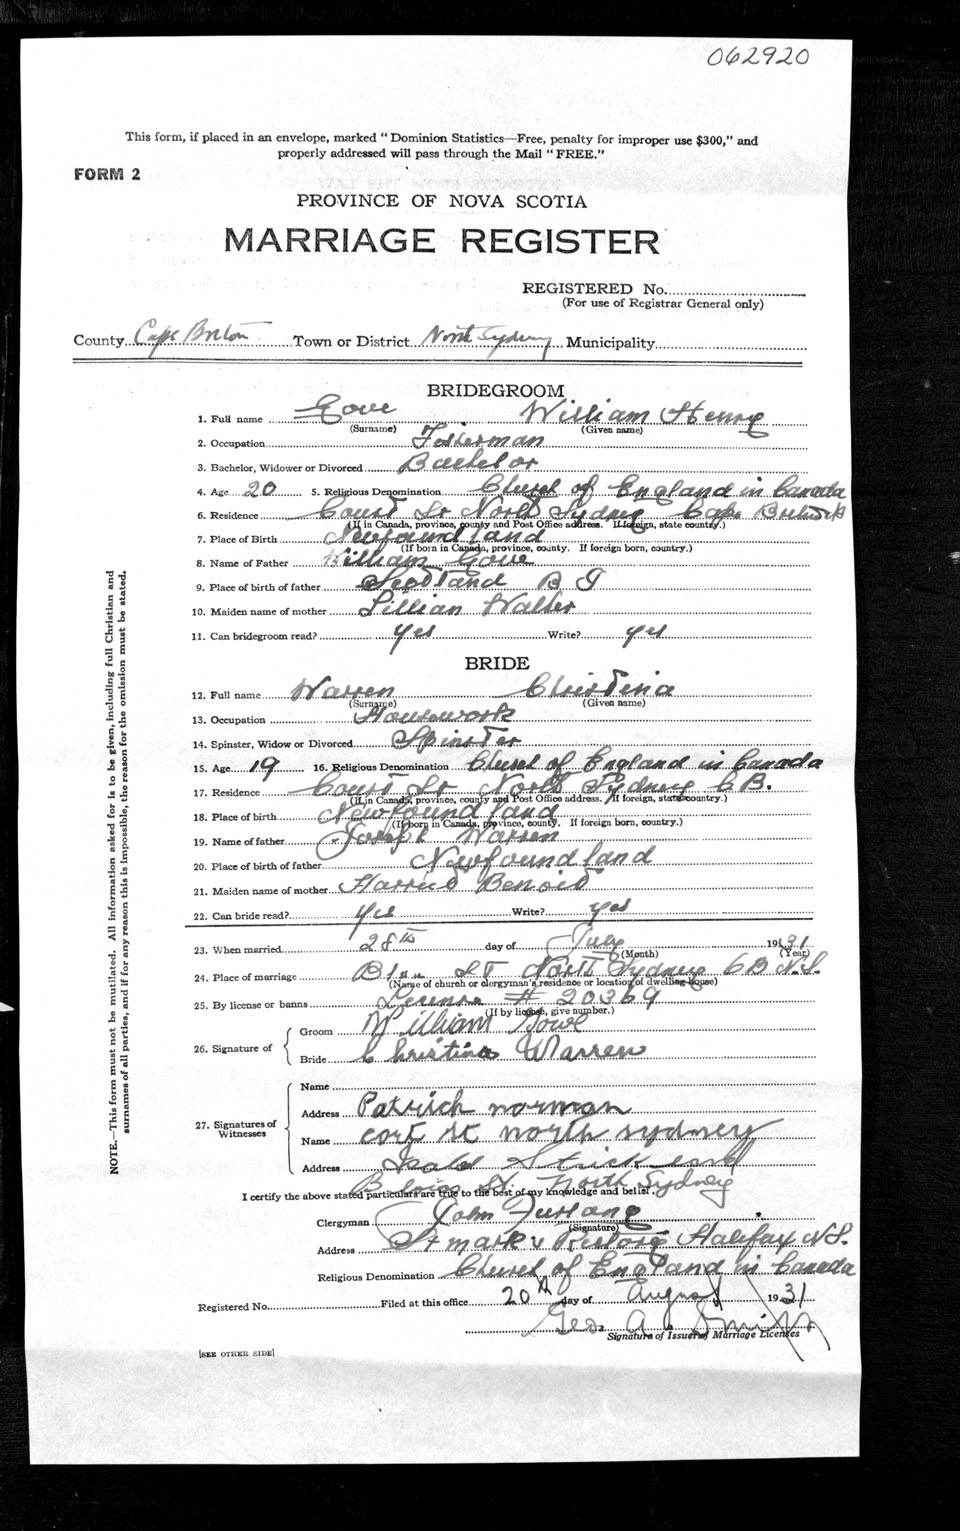 062920
This form, if placed in an envelope, marked "Dominion Statistics—Free, penalty for improper use $300," and
properly addressed will pass through the Mail "FREE."
FORM 2
PROVINCE OF NOVA SCOTIA
MARRIAGE REGISTER
REGISTERED No.
(For use of Registrar General only)
County Cape Breton Town or District North Sydney Municipality
BRIDEGROOM
1. Full name William Henry
(Surname) (Given name)
2. Occupation Fisherman
3. Bachelor, Widower or Divorced Bachelor
4. Age 20 5. Religious Denomination Church of England in Canada
6. Residence Court St North Sydney Cape Breton
(If in Canada, province, county and Post Office address. If foreign, state country.)
7. Place of Birth Newfoundland
(If born in Canada, province, county. If foreign born, country.)
8. Name of Father William
9. Place of birth of father Scotland
10. Maiden name of mother Lillian Walter
11. Can bridegroom read? Yes Write? yes
BRIDE
12. Full name Warren Christina
(Surname) (Given name)
13. Occupation Housework
14. Spinster, Widow or Divorced Spinster
15. Age 19 16. Religious Denomination Church of England in Canada
17. Residence Court St North Sydney C.B.
(If in Canada, province, county and Post Office address. If foreign, state country.)
18. Place of birth Newfoundland
(If born in Canada, province, county. If foreign born, country.)
19. Name of father Joseph Warren
20. Place of birth of father Newfoundland
21. Maiden name of mother Harriet Benoit
22. Can bride read? Yes Write? yes
23. When married 28th day of July 1931
(Month) (Year)
24. Place of marriage St North Sydney C B N.S.
(Name of church or clergyman's residence or location of dwelling-house)
25. By license or banns License # 20369
(If by license, give number.)
26. Signature of
Groom William Gowe
Bride Christina Warren
27. Signatures of Witnesses
Name
Address Patrick norman
Name cort st north sydney
Address Strickland
St. North Sydney
I certify the above stated particulars are true to the best of my knowledge and belief.
Clergyman John Furlong
(Signature)
Address St mark's Halifax N.S.
Religious Denomination Church of England in Canada
Registered No. Filed at this office 20th day of August 1931
Geo A Smith
Signature of Issuer of Marriage Licenses
[SEE OTHER SIDE]
NOTE.—This form must not be mutilated. All Information asked for is to be given, including full Christian and
surnames of all parties, and if for any reason this is impossible, the reason for the omission must be stated.